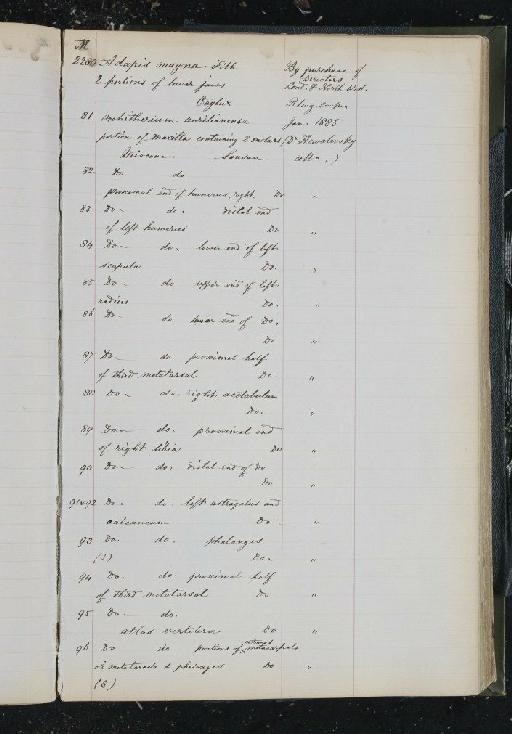 M
2280 Adapis magna. Filh By purchase of
Directors
2 portions of lower jaws Lond. & North West.
Caylux
81 Anchitherium aurelianense Jan. 1885
portion of Maxilla containing 2 molars (Dr Kowalevsky
colln.)
82 Do do
proximal end of humerus, right. Do "
83 Do - do. distal end
of left humerus Do "
84 Do - do. lower end of left
scapula Do. "
85 Do - do upper end of left
radius Do. "
86 Do - do lower end of Do.
Do "
87 Do - do proximal half
of third metatarsal Do "
88 Do - do. right acetabulum
Do. "
89 Do - do. proximal end
of right tibia Do "
90 Do - do. distal end of Do
Do "
91 & 92 Do - do. left astragalus and
calcaneum Do - "
93 Do. do. phalanges
(3) Do. "
94 Do. do proximal half
of third metatarsal Do "
95 Do - do.
atlas vertebra Do "
96 Do do portions of metacarpals
or metatarsals & phalanges Do "
(6)